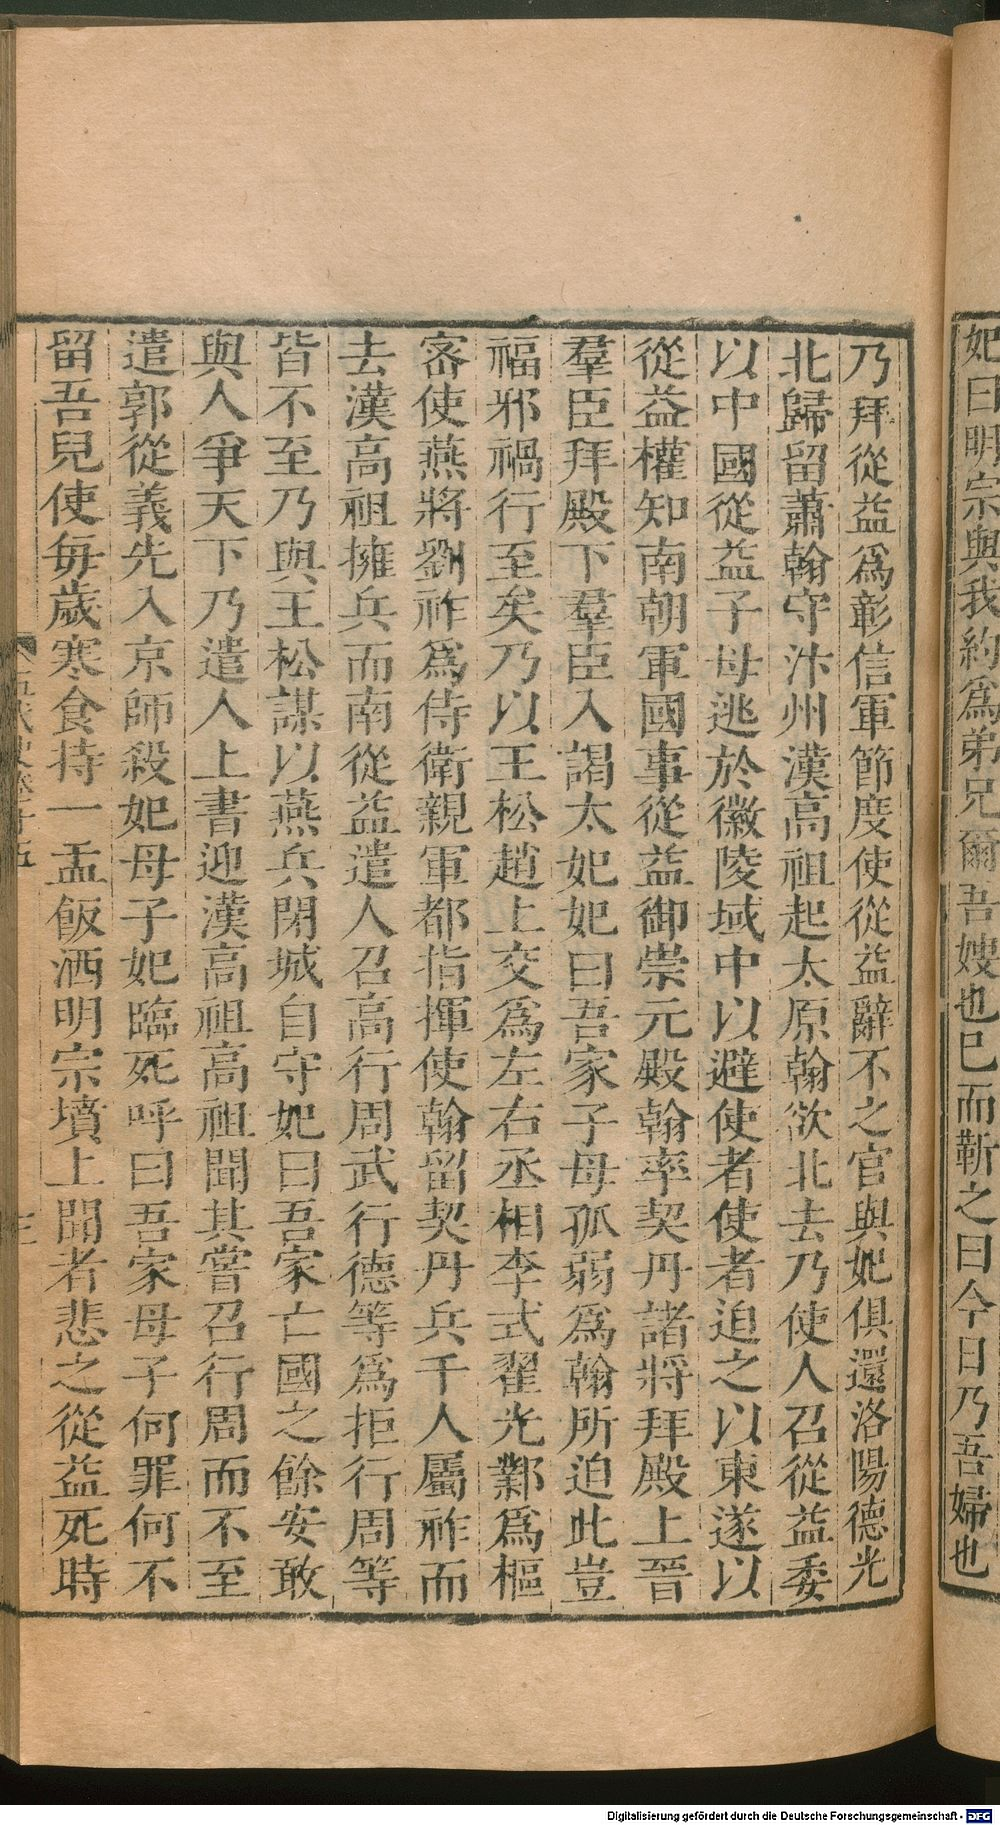 妃曰明宗與我約爲弟兄爾吾嫂也巳而靳之曰今日乃吾婦也
乃拜從益爲彰信軍節度使從益辭不之官與妃俱還洛陽德光
北歸留蕭翰守汴州漢高祖起太原翰欲北去乃使人召從益委
以中國從益子母逃於徽陵域中以避使者使者迫之以東遂以
從益權知南朝軍國事從益御崇元殿翰率契丹諸將拜殿上晉
羣臣拜殿下羣臣入謁太妃妃曰吾家子母孤弱爲翰所迫此豈
福邪禍行至矣乃以王松趙上交爲左右丞相李式翟光鄴爲樞
密使燕將劉祚爲侍衛親軍都指揮使翰留契丹兵千人屬祚而
去漢高祖擁兵而南從益遣人召高行周武行德等爲拒行周等
皆不至乃與王松謀以燕兵閉城自守妃曰吾家亡國之餘安敢
與人爭天下乃遣人上書迎漢高祖高祖聞其嘗召行周而不至
遣郭從義先入京師殺妃母子妃臨死呼曰吾家母子何罪何不
留吾兒使每歲寒食持一盂飯洒明宗墳上聞者悲之從益死時
五代史卷十五
三
Digitalisierung gefördert durch die Deutsche Forschungsgemeinschaft - DFG